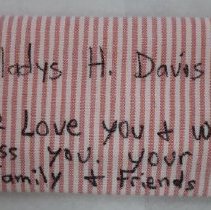 ladys H. Davis
Love you & w
ss you. your
amily & Friends